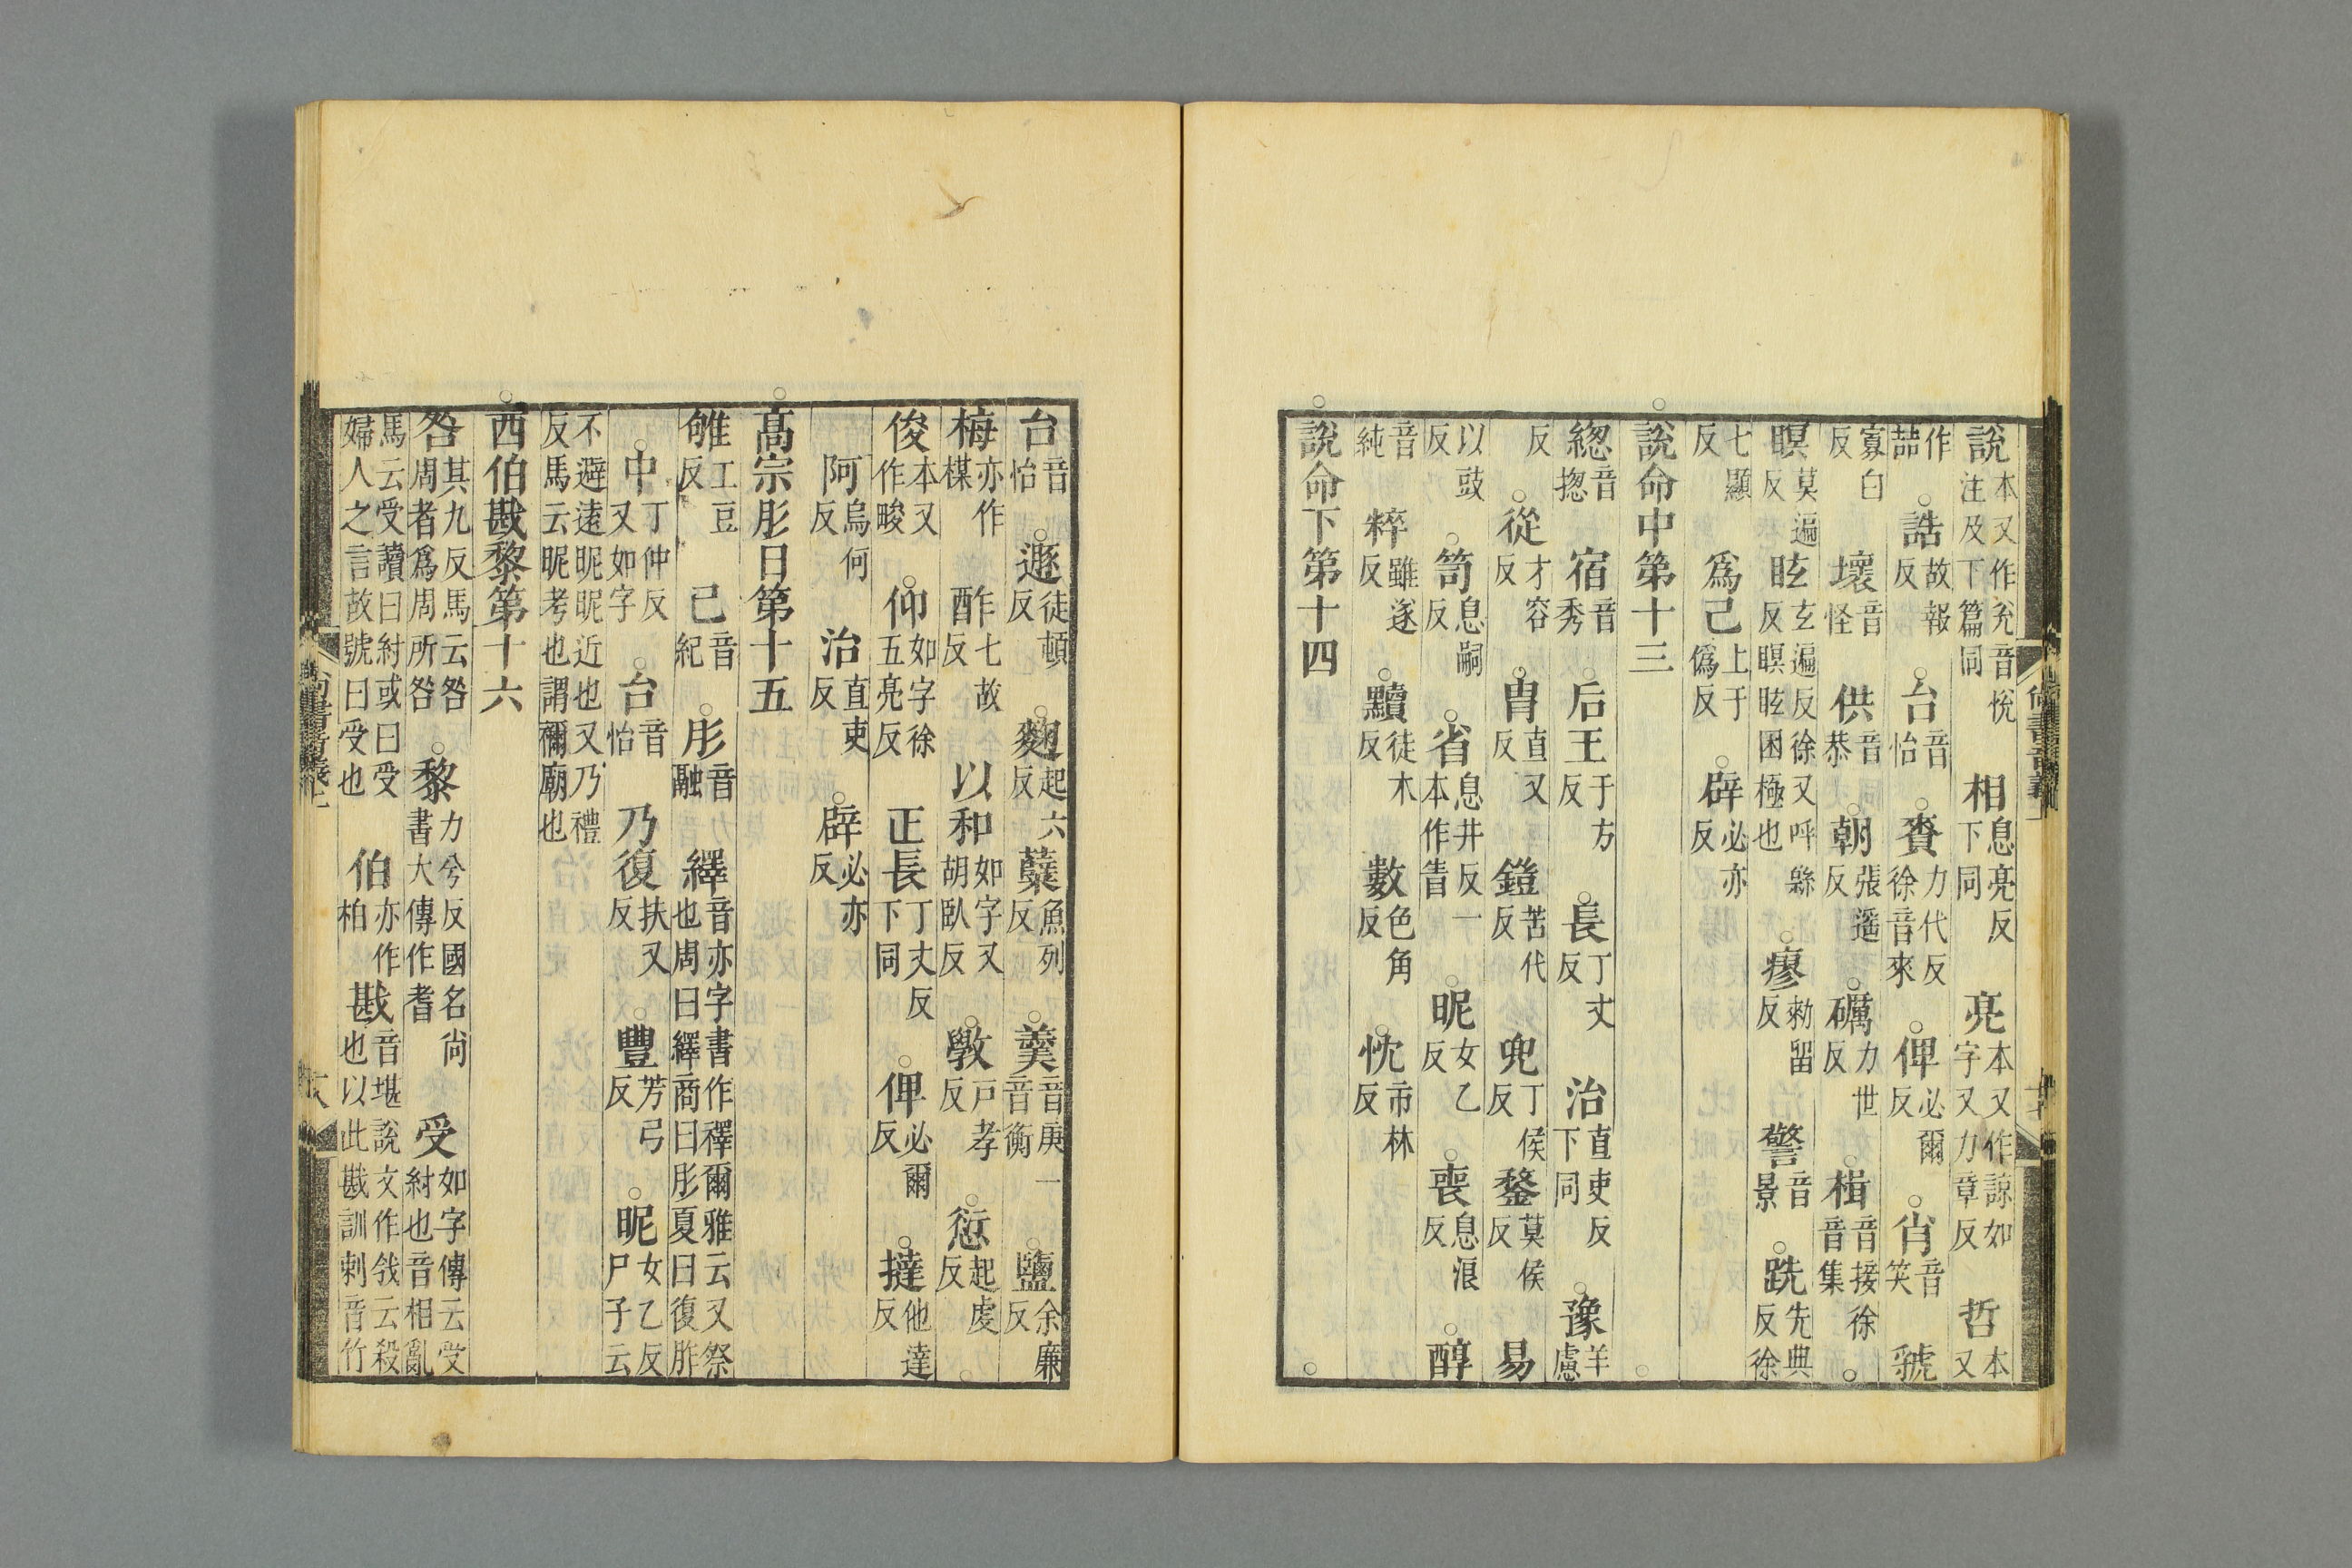 說本又作兊音悅注及下篇同　相息亮反下同　亮本又作諒如字又力章反　哲本又
作喆　○誥故報反　○台音怡　○賚力代反徐音來　○俾必爾反　○肖音笑　號
寡白反　壞音怪　供音恭　○朝張遥反　○礪力世反　○楫音接徐音集　○
瞑莫遍反　眩玄遍反徐又呼縣反瞑眩困極也　○瘳勑留反　警音景　○跣先典反徐
七顯反　爲己上于僞反　○辟必亦反
○說命中第十三　○
緫音揔　宿音秀　○后王于方反　○長丁丈反　治直吏反下同　○豫羊慮
反　○從才容反　○胄直又反　鎧苦代反　兜丁侯反　鍪莫侯反　易
以豉反　○笥息嗣反　○省息井反一本作眚　○昵女乙反　○喪息浪反　○醇
音純　粹雖遂反　○黷徒木反　數色角反　○忱市林反　○
○說命下第十四
台音怡　○遯徒頓反　○麴起六反　蘖魚列反　○羹音庚一音衡　○鹽余廉反
梅亦作楳　酢七故反　以和如字又胡臥反　○斆戶孝反　○愆起虔反　○
俊本又作畯　○仰如字徐五亮反　正長丁丈反下同　○俾必爾反　○撻他達反
阿烏何反　治直吏反　○辟必亦反
○高宗肜日第十五
雊工豆反　己音紀　○肜音融　繹音亦字書作襗爾雅云又祭也周曰繹商曰肜夏曰復胙
○中丁仲反又如字　○台音怡　乃復扶又反　○豐芳弓反　○昵女乙反尸子云
不避遠昵昵近也又乃禮反馬云昵考也謂禰廟也
○西伯戡黎第十六
咎其九反馬云咎周者爲周所咎　○黎力兮反國名尚書大傳作耆　受如字傳云受紂也音相亂
馬云受讀曰紂或曰受婦人之言故號曰受也　伯亦作柏　戡音堪說文作𢦟云殺也以此戡訓刺音竹
尚書音義上